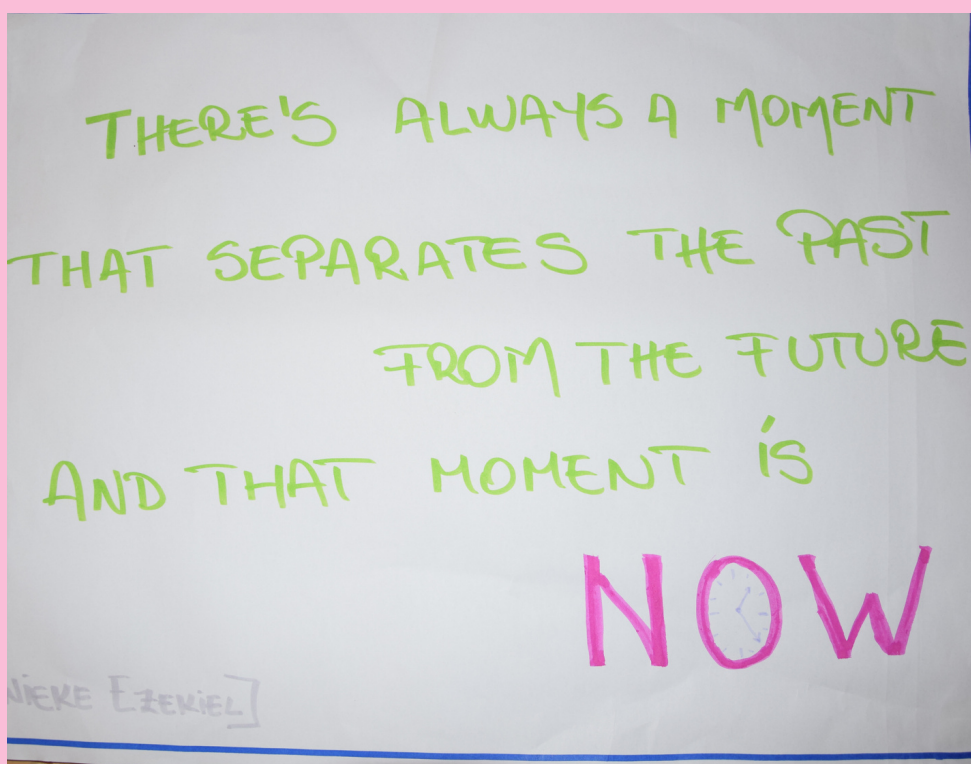 THERE'S ALWAYS A MOMENT
THAT SEPARATES THE PAST
FROM THE FUTURE
AND THAT MOMENT IS
NOW
NIEKE [EZEKIEL]